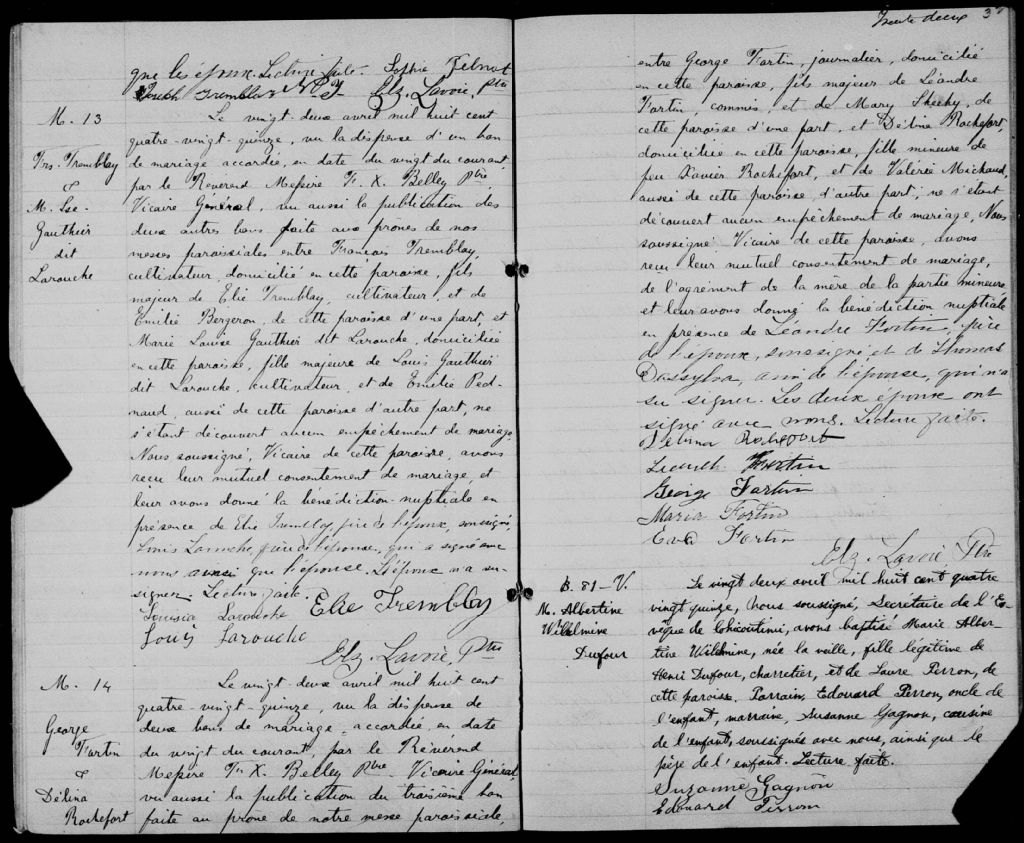 que les époux. Lecture faite. Sophie Tebnot
Joseph Tremblay Elz. Lavoie, Ptre
M. 13
Frs. Tremblay
&
M. Lse.
Gauthier
dit
Larouche
Le vingt-deux avril mil huit cent
quatre-vingt-quinze, vu la dispense d'un ban
de mariage accordée, en date du vingt du courant,
par le Reverend Messire F. X. Belley Ptre
Vicaire Général, vu aussi la publication des
deux autres bans faite aux prônes de nos
messes paroissiales entre François Tremblay,
cultivateur, domicilié en cette paroisse, fils
majeur de Elie Tremblay, cultivateur, et de
Emilie Bergeron, de cette paroisse d'une part, et
Marie Louise Gauthier dit Larouche, domiciliée
en cette paroisse, fille majeure de Louis Gauthier
dit Larouche, cultivateur, et de Emilie Ped-
naud, aussi de cette paroisse d'autre part, ne
s'étant découvert aucun empêchement de mariage,
Nous soussigné, Vicaire de cette paroisse, avons
reçu leur mutuel consentement de mariage, et
leur avons donné la bénédiction nuptiale en
présence de Elie Tremblay, père de l'époux, soussigné,
Louis Larouche, père de l'épouse, qui a signé avec
nous ainsi que l'épouse. L'époux n'a su
signer. Lecture faite.
Louisia Larouche Elie Tremblay
Louis Larouche
Elz. Lavoie, Ptre
M. 14
George
Fortin
&
Délina
Rochefort
Le vingt-deux avril mil huit cent
quatre-vingt-quinze, vu la dispense de
deux bans de mariage accordée en date
du vingt du courant, par le Révérend
Messire F. X. Belley Ptre Vicaire Général,
vu aussi la publication du troisième ban
faite au prône de notre messe paroissiale,
Trente deux 32
entre George Fortin, journalier, domicilié
en cette paroisse, fils majeur de Léandre
Fortin, commis, et de Mary Sheehy, de
cette paroisse d'une part, et Délina Rochefort,
domiciliée en cette paroisse, fille mineure de
feu Xavier Rochefort, et de Valérie Michaud,
aussi de cette paroisse, d'autre part; ne s'étant
découvert aucun empêchement de mariage, Nous
soussigné Vicaire de cette paroisse, avons
reçu leur mutuel consentement de mariage,
de l'agrément de la mère de la partie mineure
et leur avons donné la bénédiction nuptiale
en présence de Léandre Fortin, père
de l'époux, soussigné et de Thomas
Dassylva, ami de l'épouse, qui n'a
su signer. Les deux époux ont
signé avec nous. Lecture faite.
Delina Rochefort
Fortin
George Fortin
Maria Fortin
Eva Fortin
Elz. Lavoie Ptre
B. 81-V.
M. Albertine
Wilelmine
Dufour
Le vingt deux avril mil huit cent quatre
vingt quinze, Nous soussigné, Secrétaire de l'E-
vêque de Chicoutimi, avons baptisé Marie Alber-
tine Wilelmine, née la veille, fille légitime de
Henri Dufour, charretier, et de Laure Perron, de
cette paroisse. Parrain, Edouard Perron, oncle de
l'enfant, marraine, Susanne Gagnon, cousine
de l'enfant, soussignés avec nous, ainsi que le
père de l'enfant. Lecture faite.
Suzanne Gagnon
Edouard Perron